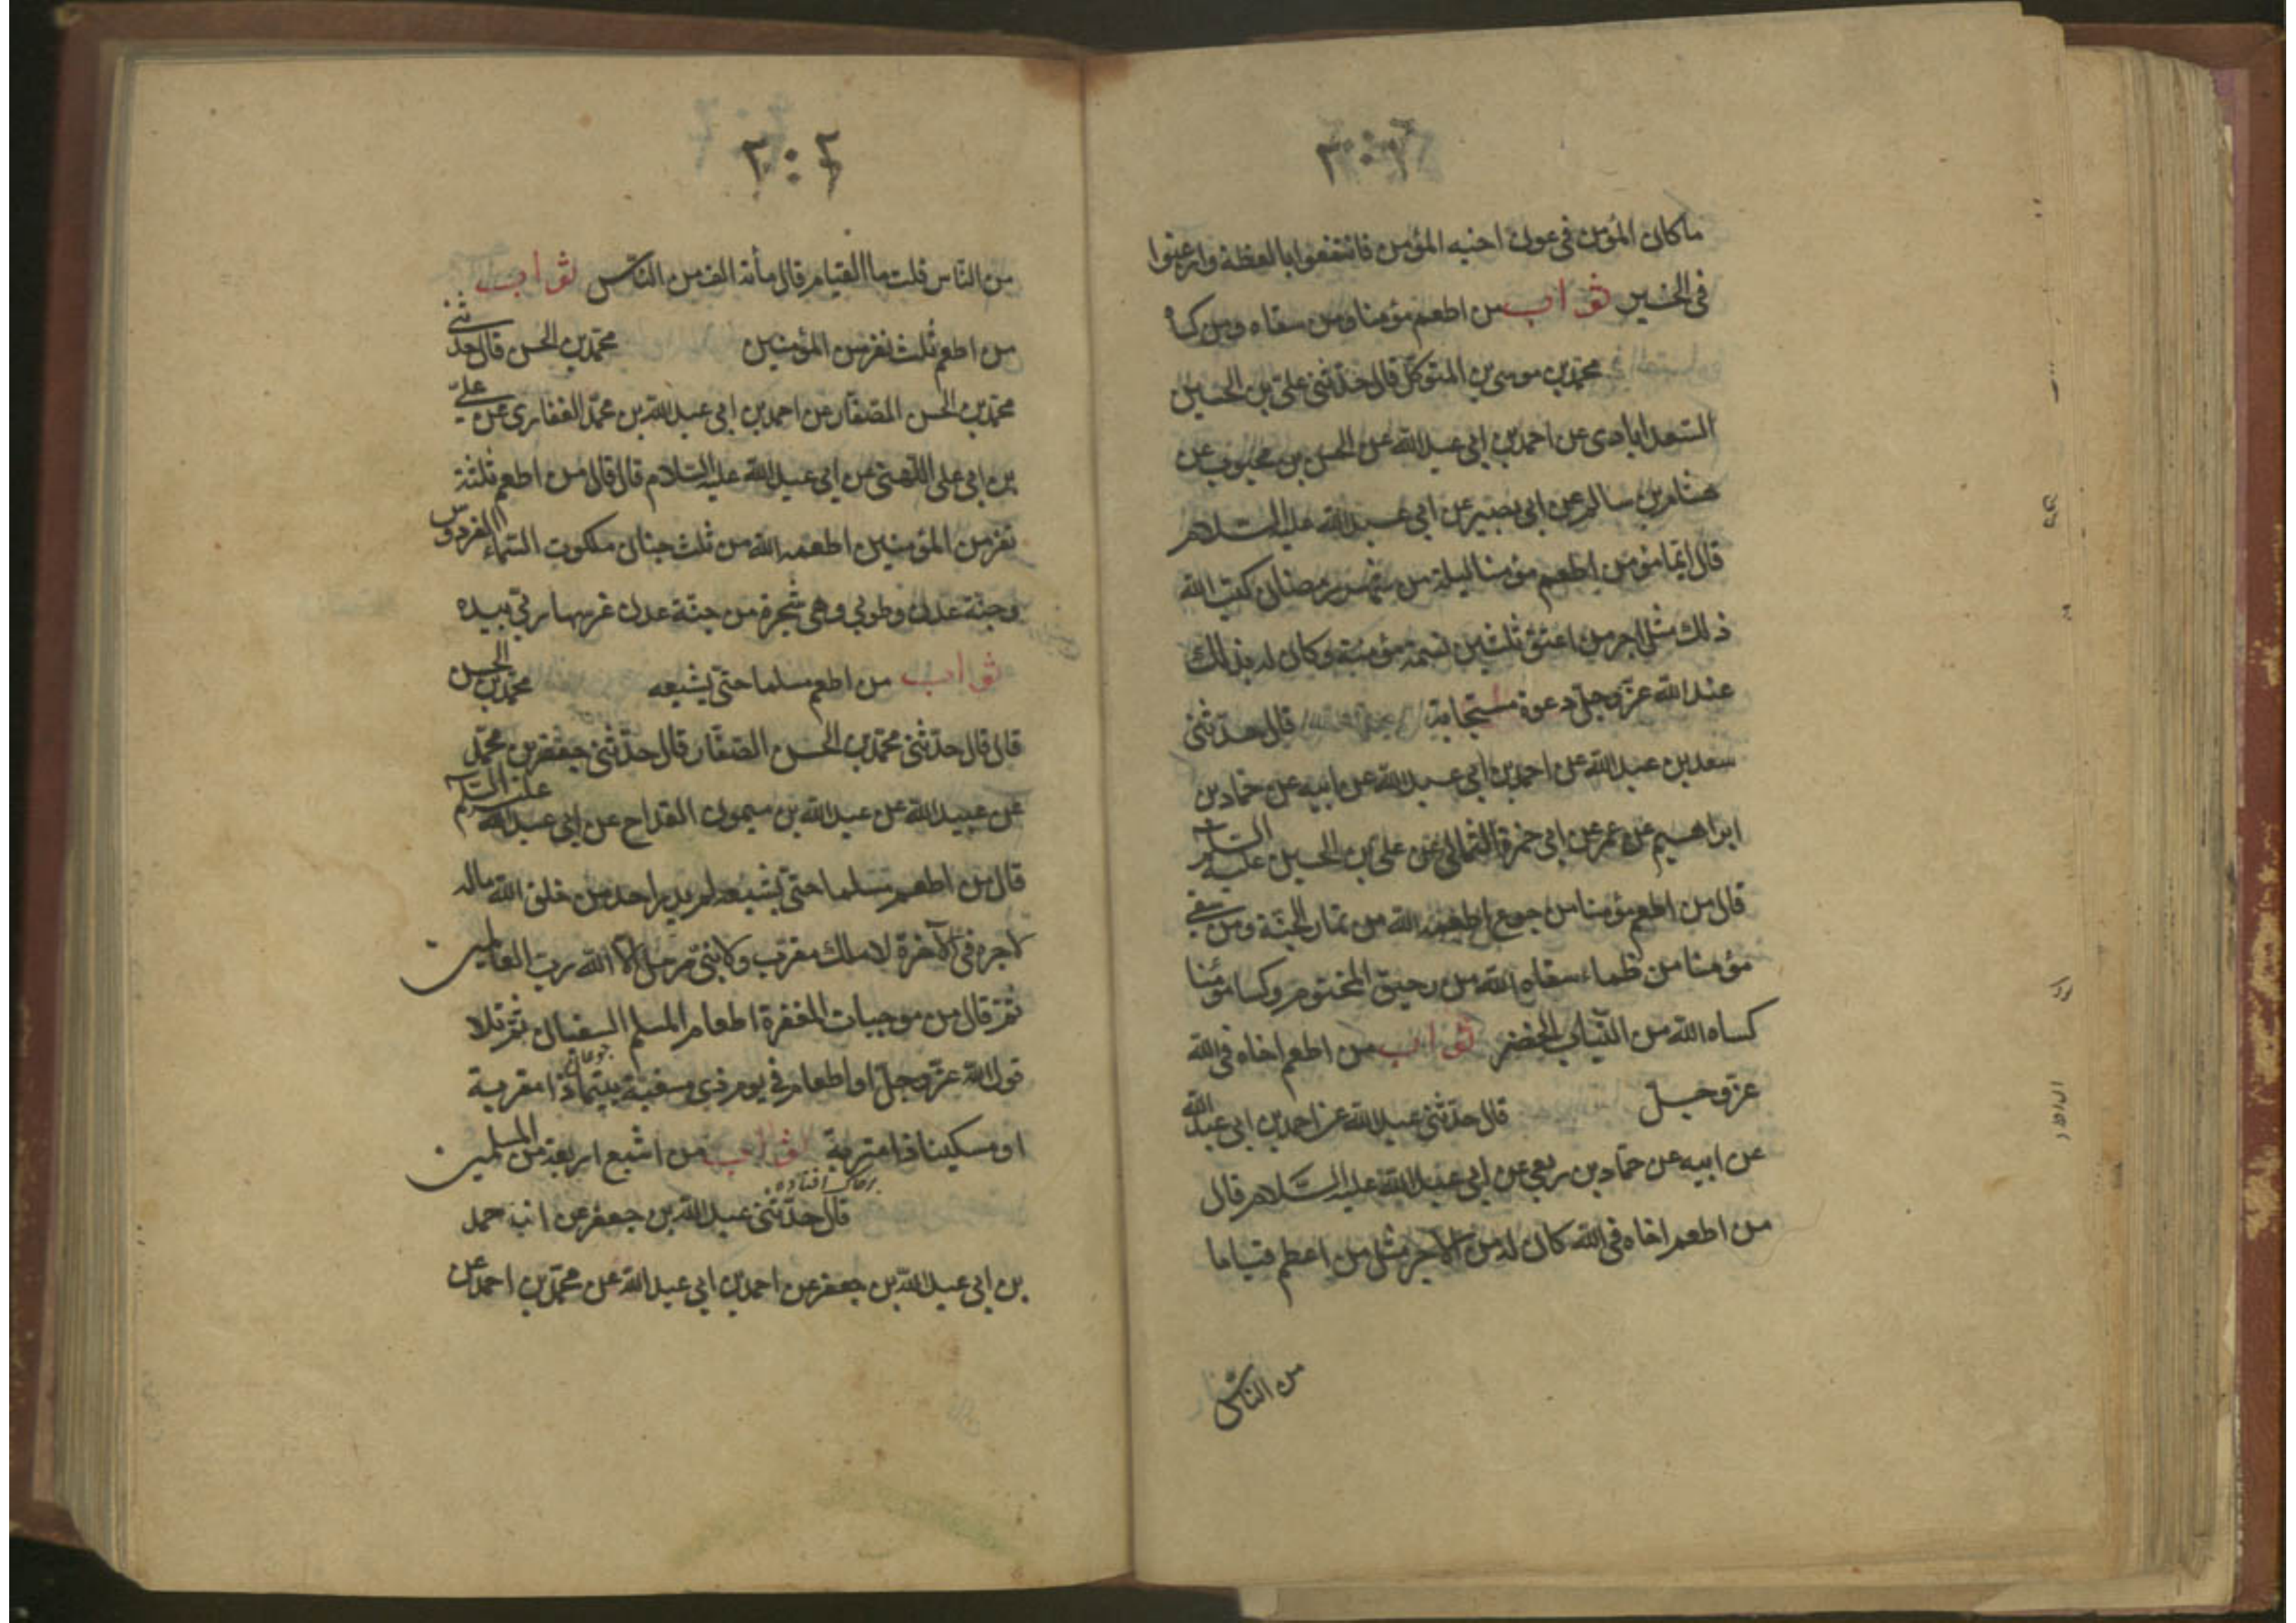 ما كان المؤمن فى عون اخيه المؤمن فانتفعوا بالعظة وارغبوا
فى الخير ثواب من اطعم مؤمنا ومن سقاه ومن كساه
محمد بن موسى بن المتوكل قال حدثنى على بن الحسين
السعدابادى عن احمد بن ابى عبد الله عن الحسن بن محبوب عن
هشام بن سالم عن ابى بصير عن ابى عبد الله عليه السلام
قال ايما مؤمن اطعم مؤمنا ليلة من شهر رمضان كتب الله
ذلك مثل اجر من اعتق ثلثين نسمة مؤمنة وكان له بذلك
عند الله عز وجل دعوة مستجابة قال حدثنى
سعد بن عبد الله عن احمد بن ابى عبد الله عن ابيه عن حماد بن
ابراهيم عن عمر عن ابى حمزة الثمالى عن على بن الحسين عليه السلام
قال من اطعم مؤمنا من جوع اطعمه الله من ثمار الجنة ومن سقى
مؤمنا من ظماء سقاه الله من رحيق المختوم وكسا مؤمنا
كساه الله من الثياب الخضر ثواب من اطعم اخاه فى الله
عز وجل قال حدثنى عبد الله عن احمد بن ابى عبد الله
عن ابيه عن حماد بن ربعى عن ابى عبد الله عليه السلام قال
من اطعم اخاه فى الله كان له من الاجر مثل من اطعم فياما
من الناس
٢٠٤
من الناس قلت ما الفيام قال مأئة الف من الناس ثواب
من اطعم ثلث نفر من المؤمنين محمد بن الحسن قال حدثنى
محمد بن الحسن الصفار عن احمد بن ابى عبد الله بن محمد الغفارى عن على
بن ابى على اللهبى عن ابى عبد الله عليه السلام قال قال من اطعم ثلثة
نفر من المؤمنين اطعمه الله من ثلث جنان ملكوت السماء الفردوس
وجنة عدن وطوبى وهى شجرة من جنة عدن غرسها ربى بيده
ثواب من اطعم مسلما حتى يشبعه محمد بن الحسن
قال قال حدثنى محمد بن الحسن الصفار قال حدثنى جعفر بن محمد
عن عبيد الله عن عبد الله بن ميمون القداح عن ابى عبد الله عليه السلام
قال من اطعم مسلما حتى يشبعه لم يدر احد من خلق الله ما له
لاجره فى الآخرة لا ملك مقرب ولا نبى مرسل الا الله رب العالمين
ثم قال من موجبات المغفرة اطعام المسلم السغبان ثم تلا
قول الله عز وجل او اطعام فى يوم ذى مسغبة يتيما ذا مقربة
او مسكينا ذا متربة ثواب من اشبع اربعة من المسلمين
قال حدثنى عبد الله بن جعفر عن
بن ابى عبد الله بن جعفر عن احمد بن ابى عبد الله عن محمد بن احمد عن